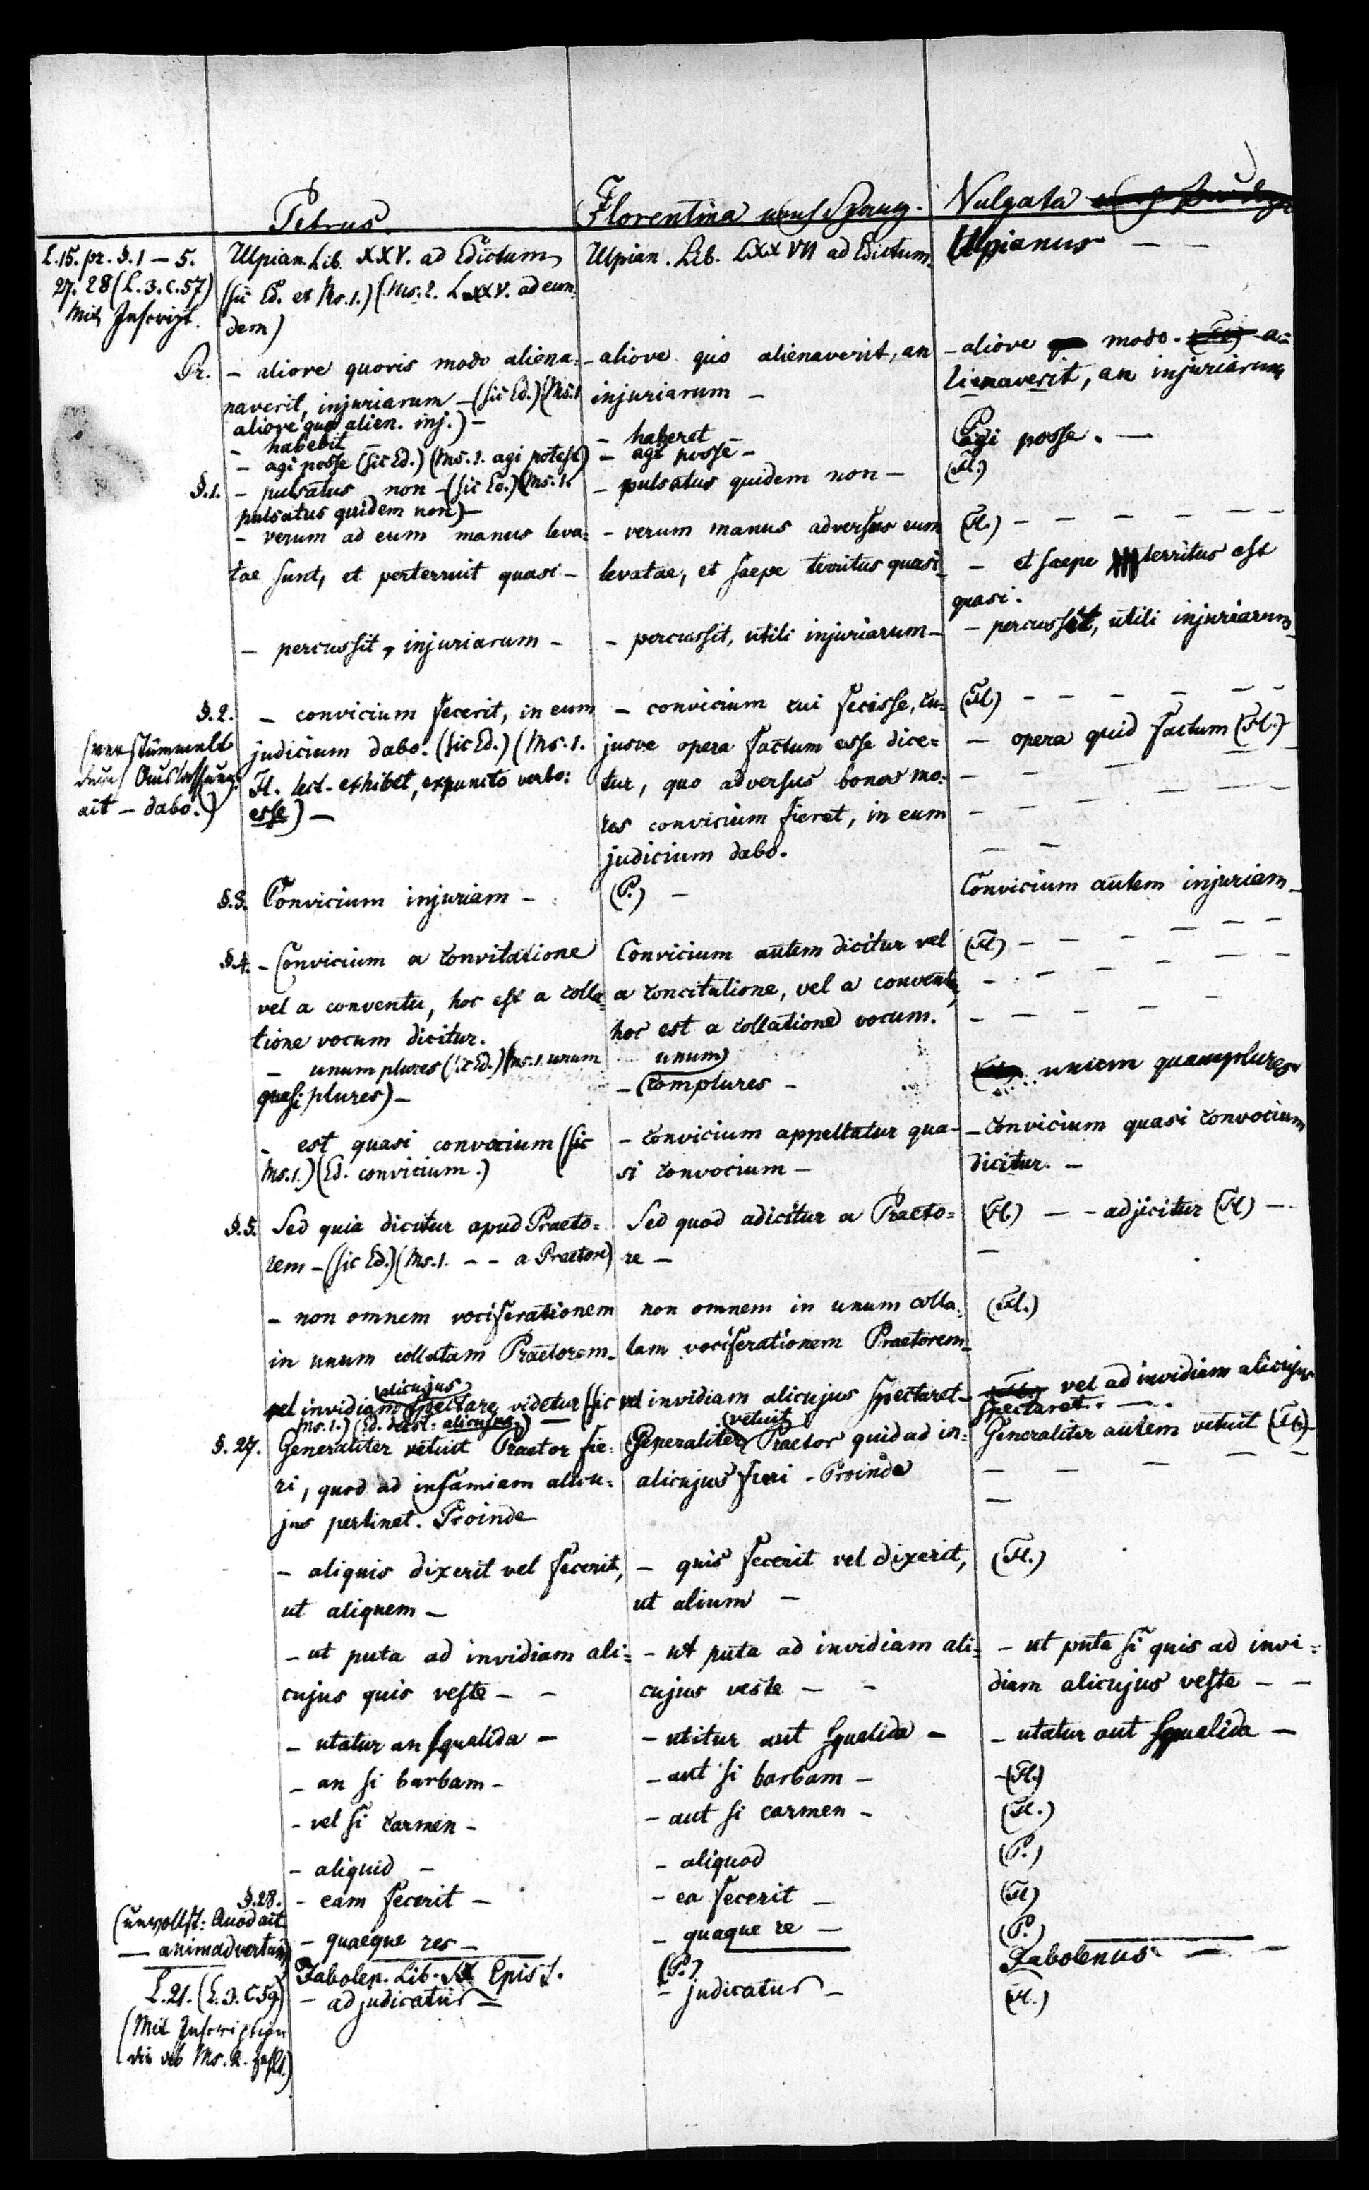 Petrus.
Florentina
Vulgata
L.15. pr. §.1 — 5.
27. 28 (L. 3. c. 57)
Mit Inscript.
Ulpian. Lib. XXV. ad Edictum
(sic Ed. et Ms.1.) (Ms.2. LXXV. ad eun-
dem)
Ulpian. Lib. LXXVII ad Edictum.
Ulpianus — —
Pr.
— aliove quovis modo aliena=
naverit, injuriarum — (sic Ed.) (Ms.1
aliove quo alien. inj.) —
— habebit
— agi posse (sic Ed.) (Ms. 1. agi potest)
— aliove quo alienaverit, an
injuriarum —
— haberet —
— agi posse —
— aliove modo. a=
lienaverit, an injuriarum
agi posse. —
§.1.
— pulsatus non — (sic Ed.) (Ms.1.
pulsatus quidem non) —
— verum ad eum manus leva=
tae sunt, et perterruit quasi —
— percussit, injuriarum —
— pulsatus quidem non —
— verum manus adversus eum
levatae, et saepe territus quasi —
— percussit, utili injuriarum —
(Fl.)
(Fl.) — — — — — —
— et saepe territus est
quasi.
— percussit, utili injuriarum —
§.2.
(verstümmelt
durch Auslassung:
ait — dabo.)
— convicium fecerit, in eum
judicium dabo. (sic Ed.) (Ms. 1.
Fl. lect. exhibet, expuncto verbo:
esse) —
— convicium cui fecisse, cu=
jusve opera factum esse dice=
tur, quo adversus bonos mo=
res convicium fieret, in eum
judicium dabo.
(Fl.) — — — — — —
— opera quid factum (Fl.) —
— — — —
— — — — — —
— —
§.3.
Convicium injuriam —
(P.) —
Convicium autem injuriam —
§.4.
— Convicium a convitatione
vel a conventu, hoc est a colla=
tione vocum dicitur.
— unum plures (sic Ed.) (Ms.1. unum
quasi plures) —
— est quasi convocium (sic
Ms.1.) (Ed. convicium.)
Convicium autem dicitur vel
a concitatione, vel a conventu,
hoc est a collatione vocum.
unum
— complures —
— convicium appellatur qua=
si convocium —
(Fl.) — — — — — —
— — — — — —
— — — — —
unicum quamplures.
— convicium quasi convocium
dicitur. —
§.5.
Sed quia dicitur apud Praeto=
rem — (sic Ed.) (Ms.1. — — a Praetore)
— non omnem vociferationem
in unum collatam Praetorem —
vel invidiam alicujus spectare videtur (sic
Ms.1.) (Ed. deest. alicujus.) —
Sed quod adicitur a Praeto=
re —
non omnem in unum colla=
tam vociferationem Praetorem —
vel invidiam alicujus spectaret —
(Fl.) — — adjicitur (Fl.) —
—
(Fl.)
vel ad invidiam alicujus
spectaret. —
§. 27.
Generaliter vetuit Praetor fie=
ri, quod ad infamiam alicu=
jus pertinet. Proinde
— aliquis dixerit vel fecerit,
ut aliquem —
— ut puta ad invidiam ali=
cujus quis veste — —
— utatur an squalida —
— an si barbam —
— vel si carmen —
— aliquid —
Generaliter vetuit Praetor quid ad in=
alicujus fieri — Proinde
— quis fecerit vel dixerit,
ut alium —
— ut puta ad invidiam ali=
cujus veste — —
— utitur aut squalida —
— aut si barbam —
— aut si carmen —
— aliquod
Generaliter autem vetuit (Fl.) —
— — — — —
—
(Fl.)
— ut puta si quis ad invi=
diam alicujus veste — —
— utatur aut squalida —
— (Fl.)
(Fl.)
(P.)
§.28.
(unvollst: Quod ait
— animadvertam)
— eam fecerit —
— quaeque res —
— ea fecerit —
— quaque re —
(Fl.)
(P.)
L.21. (L.3. C.59)
(Mit Inscription
die bei Ms. 2. fehlt.)
Jabolen. Lib. Epist.
— adjudicatur —
(P.)
— judicatur —
Jabolenus — —
(Fl.)